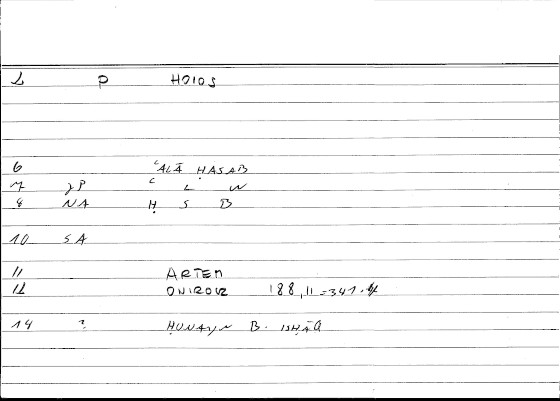 1 P HOIOS
6 ʿALĀ ḤASAB
7 JP ʿ L W
8 NA Ḥ S B
10 SA
11 ARTEM
12 ONIROCR 188,11=341.4
14 ? ḤUNAYN B. ISḤĀQ